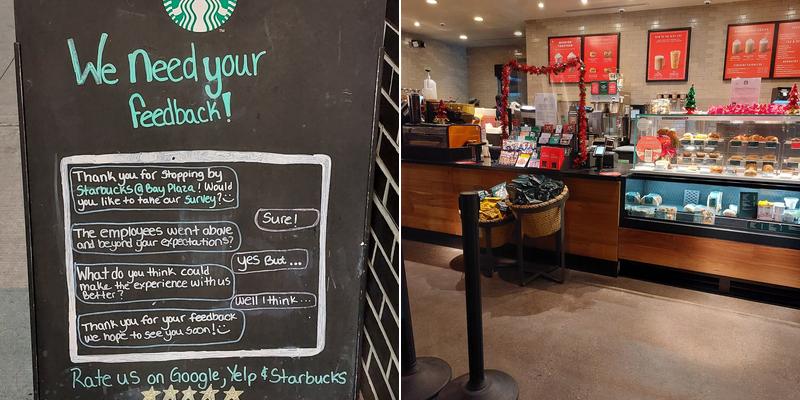 We Need your
feedback!
Thank you for stopping by
Starbucks @ Bay Plaza! Would
you like to take our survey?
Sure!
The employees went above
and beyond your expectations?
yes But...
What do you think could
make the experience with us
Better?
Well I think...
Thank you for your feedback
we hope to see you soon!
Rate us on Google, Yelp & Starbucks